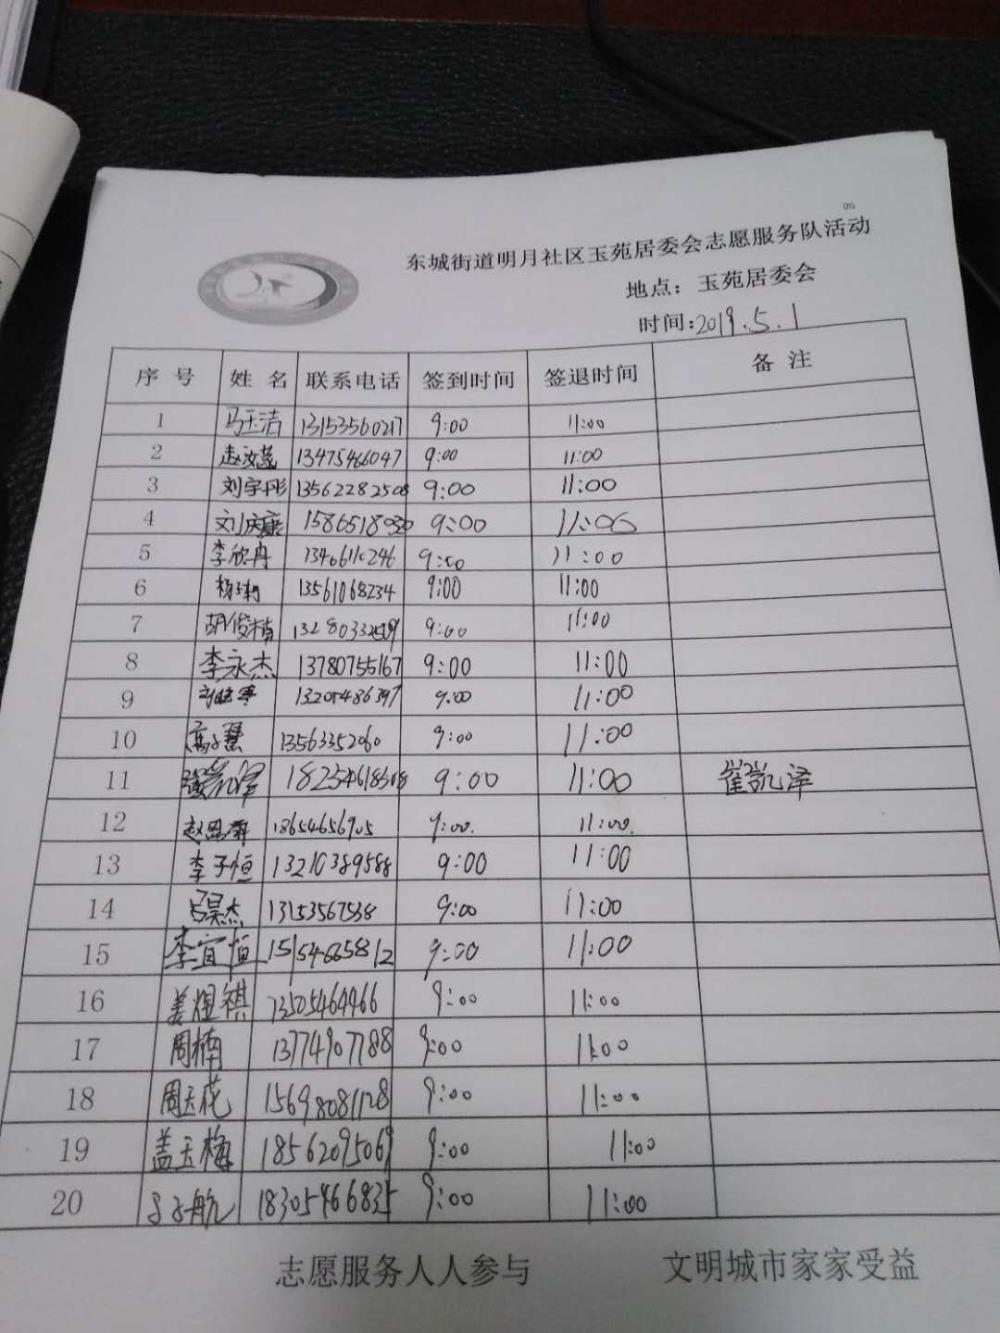 东城街道明月社区玉苑居委会志愿服务队活动
地点：玉苑居委会
时间:2019.5.1
序号 姓名 联系电话 签到时间 签退时间 备注
1 马玉洁 13153560217 9:00 11:00
2 13475466047 9:00 11:00
3 刘宇彤 13562282508 9:00 11:00
4 刘庆康 9:00 11:00
5 李欣冉 9:00 11:00
6 13561068234 9:00 11:00
7 胡俊楠 9:00 11:00
8 李永杰 13780755167 9:00 11:00
9 9:00 11:00
10 13563352060 9:00 11:00
11 9:00 11:00 崔凯泽
12 18654656905 9:00 11:00
13 李子恒 13210389588 9:00 11:00
14 吕昊杰 13153567538 9:00 11:00
15 李宜恒 9:00 11:00
16 姜煜祺 13505464466 9:00 11:00
17 周楠 13774907788 9:00 11:00
18 周玉花 15698081128 9:00 11:00
19 盖玉梅 18562095069 9:00 11:00
20 18305466835 9:00 11:00
志愿服务人人参与 文明城市家家受益